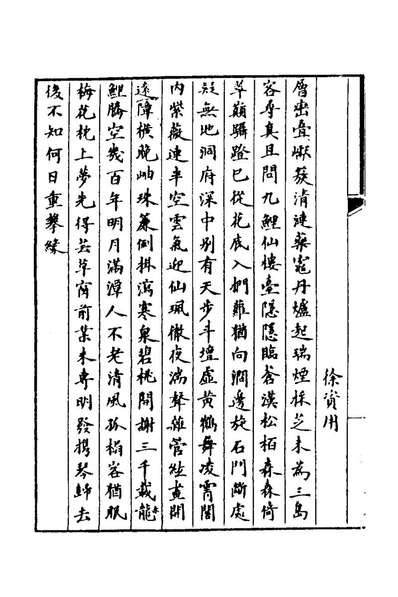 徐資用
層出疊巘簇清漣藥竈丹爐起瑞煙採芝未為三島
客尋真且問九鯉仙樓臺隱隱臨蒼漢松栢森森倚
翠巔躡蹬已從花底入捫蘿猶向澗邊旋石門斷處
疑無地洞府深中別有天步斗壇虛黃鶴舞凌霄閣
內紫薇連半空雲氣迎仙珮徹夜湍聲雜管絃畫開
遠障橫晚岫珠簾倒掛瀉寒泉碧桃開謝三千載龍赤
鯉騰空幾百年明月滿潭人不老清風孤榻客猶眠
梅花枕上夢先得芸草窗前業未專明發携琴歸去
後不知何日重攀緣